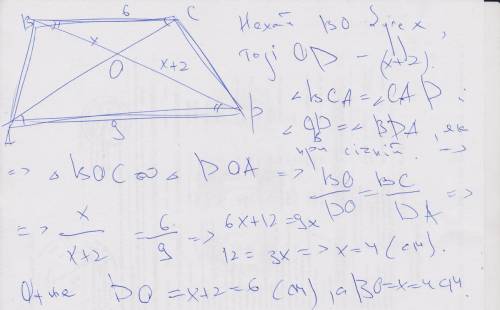 B 6 C
x
O x+2
A 9 D
Нехай BO буде x,
тоді OD – (x+2).
∠BCA=∠CAD і
=> △BOC ∞ △DOA => BO/DO = BC/DA =>
=> x/(x+2) = 6/9 => 6x+12=9x
12=3x => x=4 (см).
Отже DO=x+2=6 (см), а BO=x=4 см.